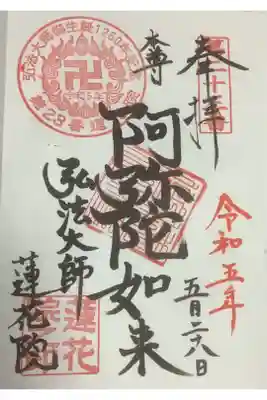 奉拝
令和五年
五月二十八日
本尊
阿弥陀如来
弘法大師
蓮花院
弘法大師御生誕1250年
第23番
蓮花